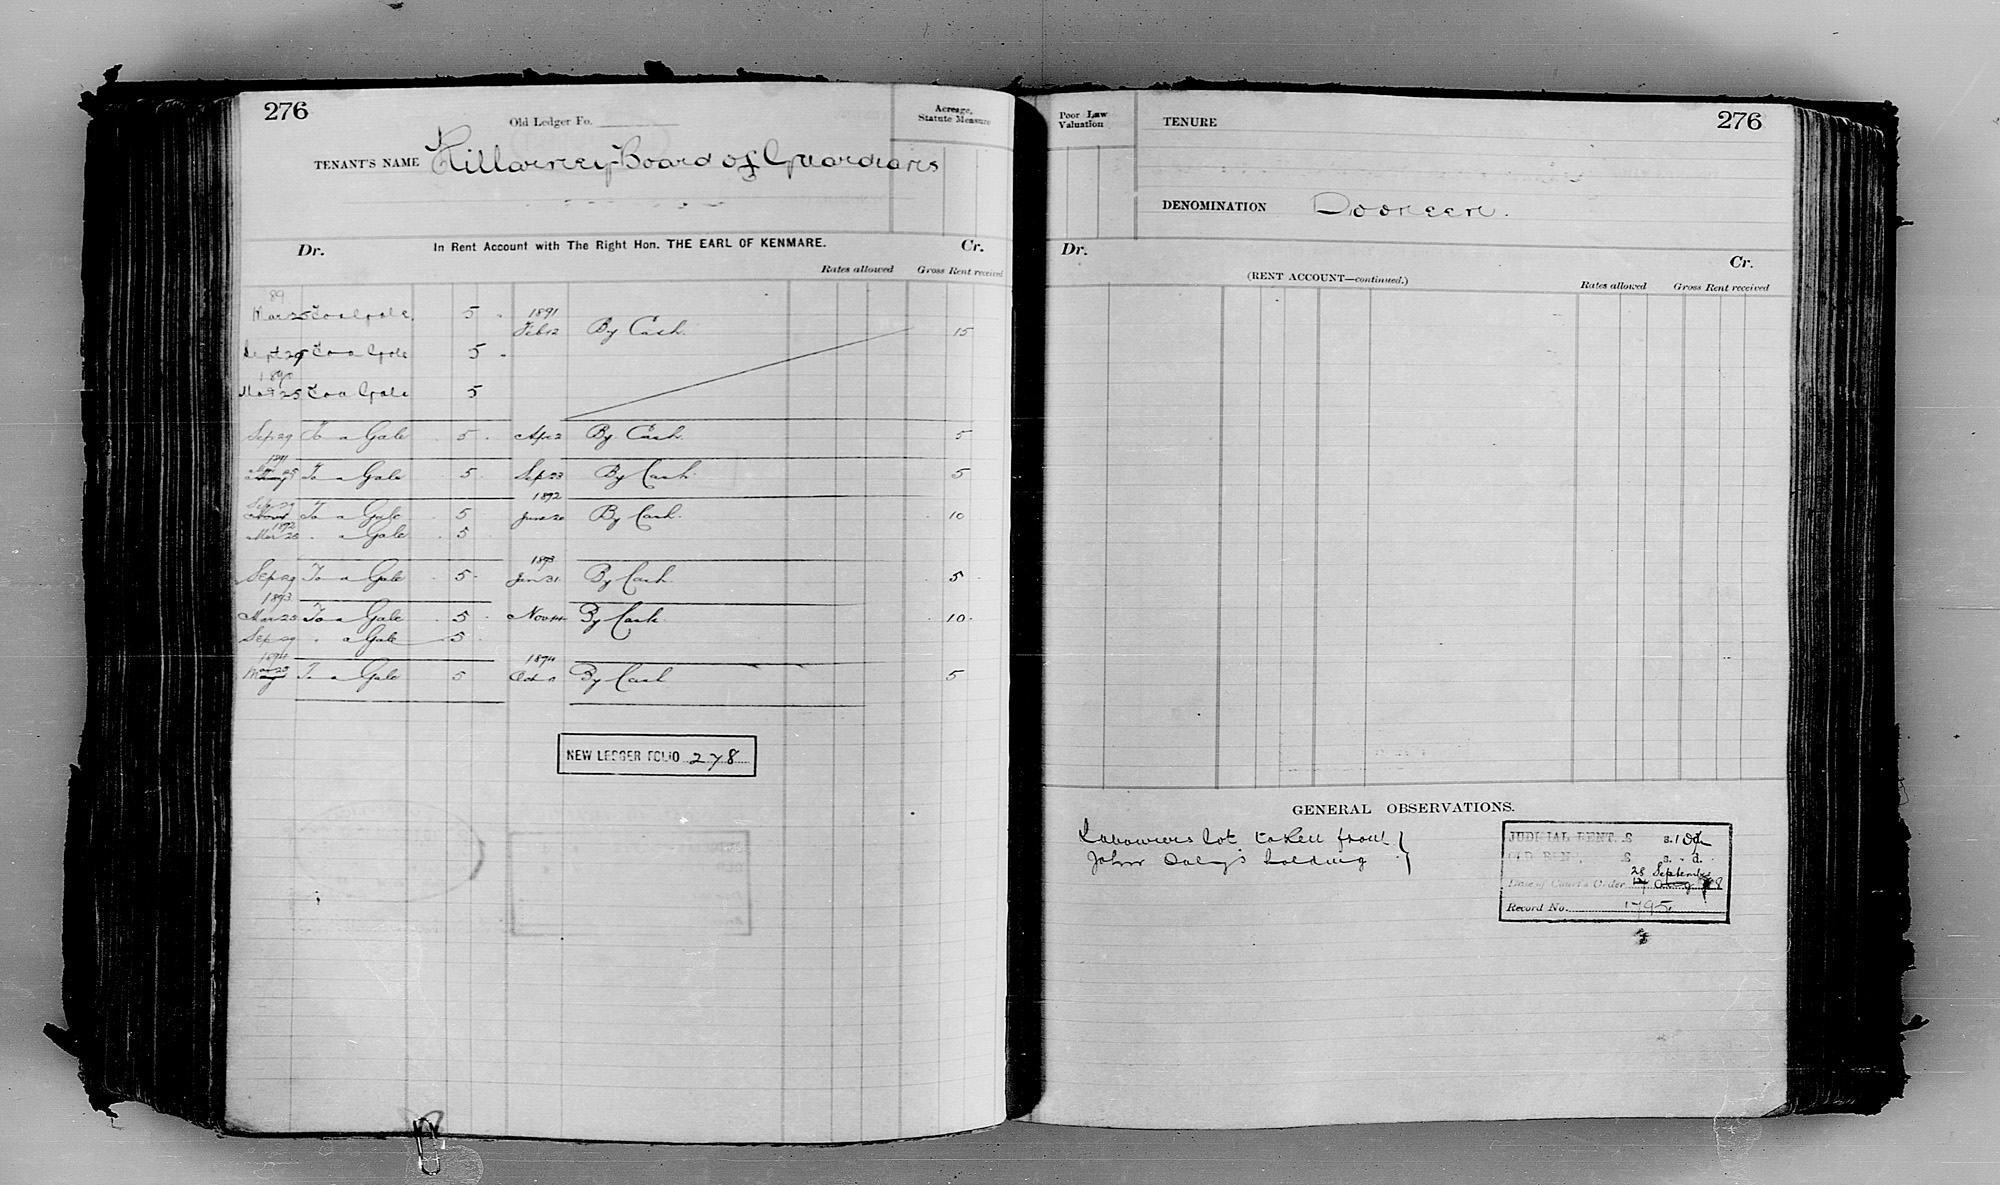 276
Old Ledger Fo.
Acreage,
Statute Measure
TENANT'S NAME Killarney Board of Guardians
Dr. In Rent Account with The Right Hon. THE EARL OF KENMARE. Cr.
Rates allowed Gross Rent received
89
Mar 25 To a Gale 5 - 1891
Feb 12 By Cash 15
Sept 29 To a Gale 5 -
1890
Mar 25 To a Gale 5
Sep 29 To a Gale 5 - Apr 2 By Cash 5
1891
Mar 25 To a Gale 5 Sep 23 By Cash 5
1892
Sep 29
To a Gale 5 June 20 By Cash 10
1892
Mar 25 " a Gale 5
1893
Sep 29 To a Gale 5 - Jan 31 By Cash 5
1893
Mar 25 To a Gale 5 Nov 14 By Cash 10
Sep 29 " a Gale 5
1894 1894
Mar 25 To a Gale 5 Oct By Cash 5
NEW LEDGER FOLIO 278
Poor Law
Valuation
TENURE
276
DENOMINATION Dooneen.
Dr. Cr.
(RENT ACCOUNT—continued.)
Rates allowed Gross Rent received
GENERAL OBSERVATIONS.
Labourers lot taken from
John Daly's holding
JUDICIAL RENT £ s. d.
OLD RENT £ s. d.
28 September
Date of Court's Order 14 Aug 98
Record No. 1795